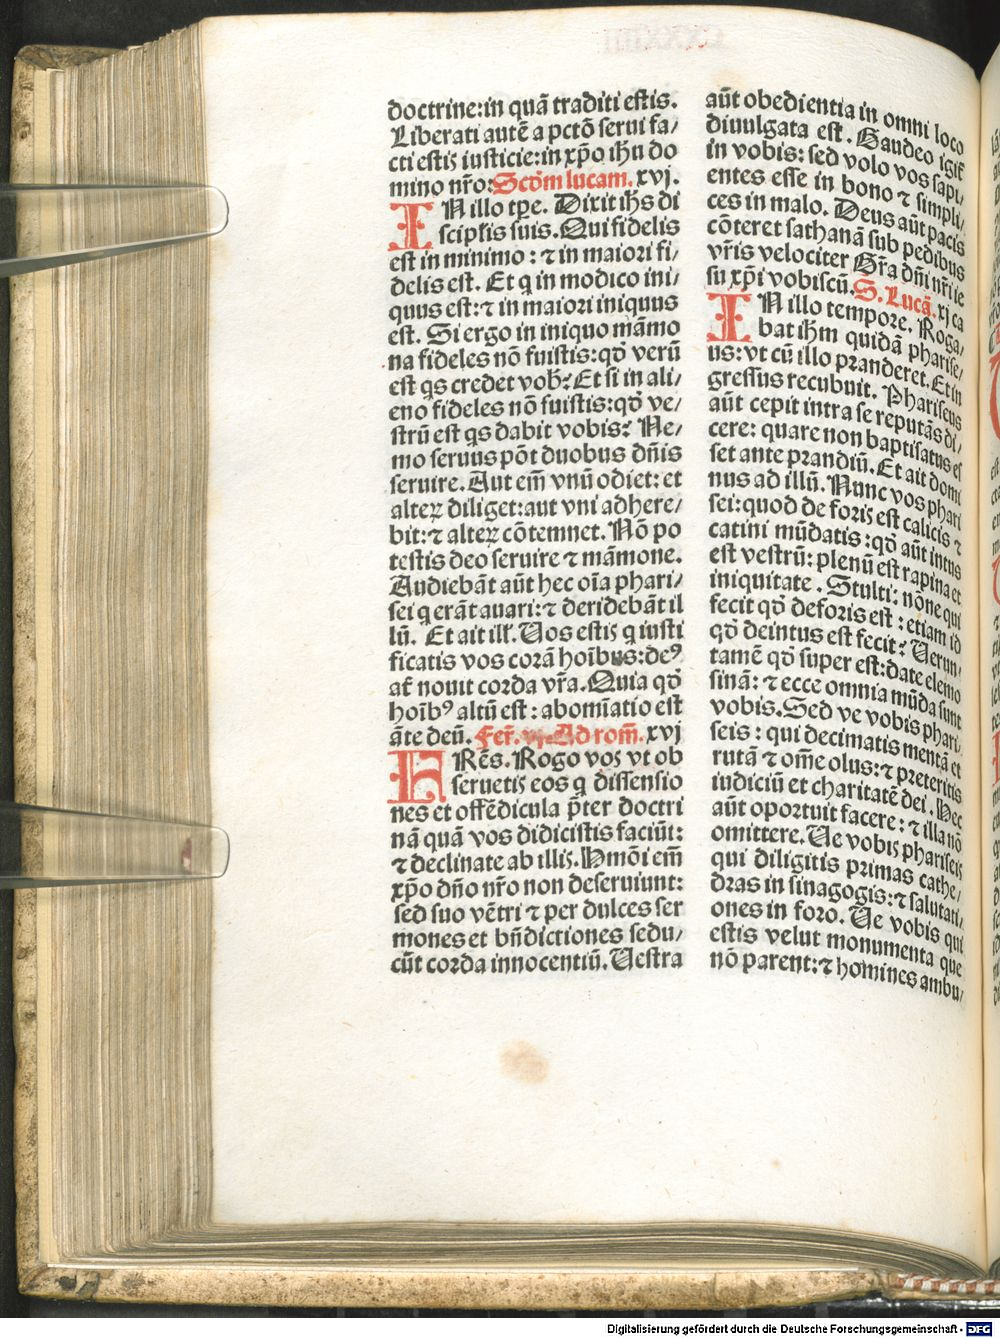 doctrine:in quā traditi estis.
Liberati autē a pctō serui fa/
cti estis iusticie:in xp̄o ih̄u do
mino nr̄o:Scd̄m lucam.xvj.
IN illo tp̄e. Dixit ih̄s di
scipl̄is suis.Qui fidelis
est in minimo : ⁊ in maiori fi/
delis est. Et q in modico ini/
quus est:⁊ in maiori iniquus
est. Si ergo in iniquo mām̄o
na fideles nō fuistis:qd̄ verū
est qs credet vob̄? Et si in ali/
eno fideles nō fuistis:qd̄ ve/
strū est qs dabit vobis? Ne/
mo seruus pōt duobus dn̄is
seruire. Aut em̄ vnū odiet: et
alteꝝ diliget:aut vni adhere/
bit:⁊ alteꝝ cōtemnet. Nō po
testis deo seruire ⁊ māmone.
Audiebāt aūt hec oīa phari/
sei q erāt auari:⁊ deridebāt il
lū. Et ait ill̄. Uos estis q iusti
ficatis vos corā hoībus:deꝰ
at̄ nouit corda vr̄a. Quia qd̄
hoībꝰ altū est : abomīatio est
āte deū. Fer̄. vj. Ad rom̄. xvj
FRēs. Rogo vos vt ob
seruetis eos q dissensio
nes et offēdicula p̄ter doctri
nā quā vos didicistis faciūt:
⁊ declinate ab illis. Hm̄oi em̄
xp̄o dn̄o nr̄o non deseruiunt:
sed suo vētri ⁊ per dulces ser
mones et bn̄dictiones sedu/
cūt corda innocentiū. Uestra
aūt obedientia in omni loco
diuulgata est. Gaudeo igit̄
in vobis: sed volo vos sapi/
entes esse in bono ⁊ simpli/
ces in malo. Deus aūt pacis
cōteret sathanā sub pedibus
vr̄is velociter Gr̄a dn̄i nr̄i ie
su xp̄i vobiscū. S. Lucā. xj ca
IN illo tempore. Roga/
bat ih̄m quidā pharise/
us: vt cū illo pranderet. Et in
gressus recubuit. Phariseus
aūt cepit intra se reputās di/
cere: quare non baptisatus es
set ante prandiū. Et ait domi
nus ad illū. Nunc vos phari
sei: quod de foris est calicis ⁊
catini mūdatis : qd̄ aūt intus
est vestrū: plenū est rapina et
iniquitate . Stulti: nōne qui
fecit qd̄ deforis est : etiam id
qd̄ deintus est fecit? Uerun/
tamē qd̄ super est:date elemo
sinā: ⁊ ecce omnia mūda sunt
vobis. Sed ve vobis phari/
seis : qui decimatis mentā et
rutā et om̄e olus: ⁊ preteritis
iudiciū et charitatē dei . Hec
aūt oportuit facere : ⁊ illa nō
omittere. Ue vobis phariseis
qui diligitis primas cathe/
dras in sinagogis: ⁊ salutati/
ones in foro. Ue vobis qui
estis velut monumenta que
nō parent: ⁊ homines ambu/
Digitalisierung gefördert durch die Deutsche Forschungsgemeinschaft - DFG